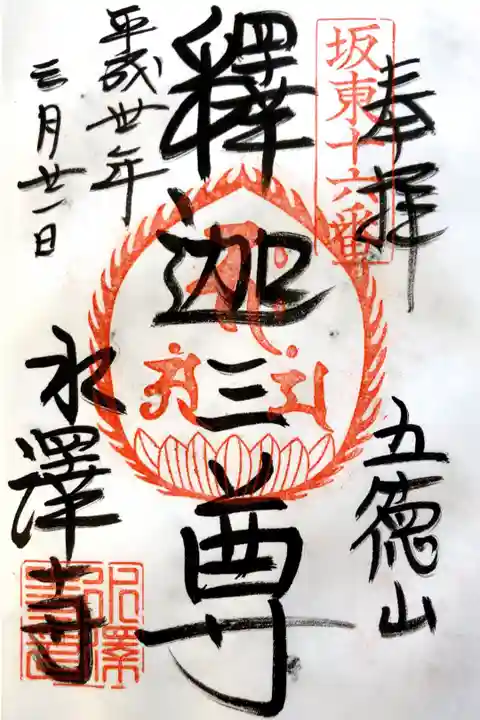 坂東十六番
奉拝
五徳山
釋迦三尊
平成丗年
三月廿一日
水澤寺